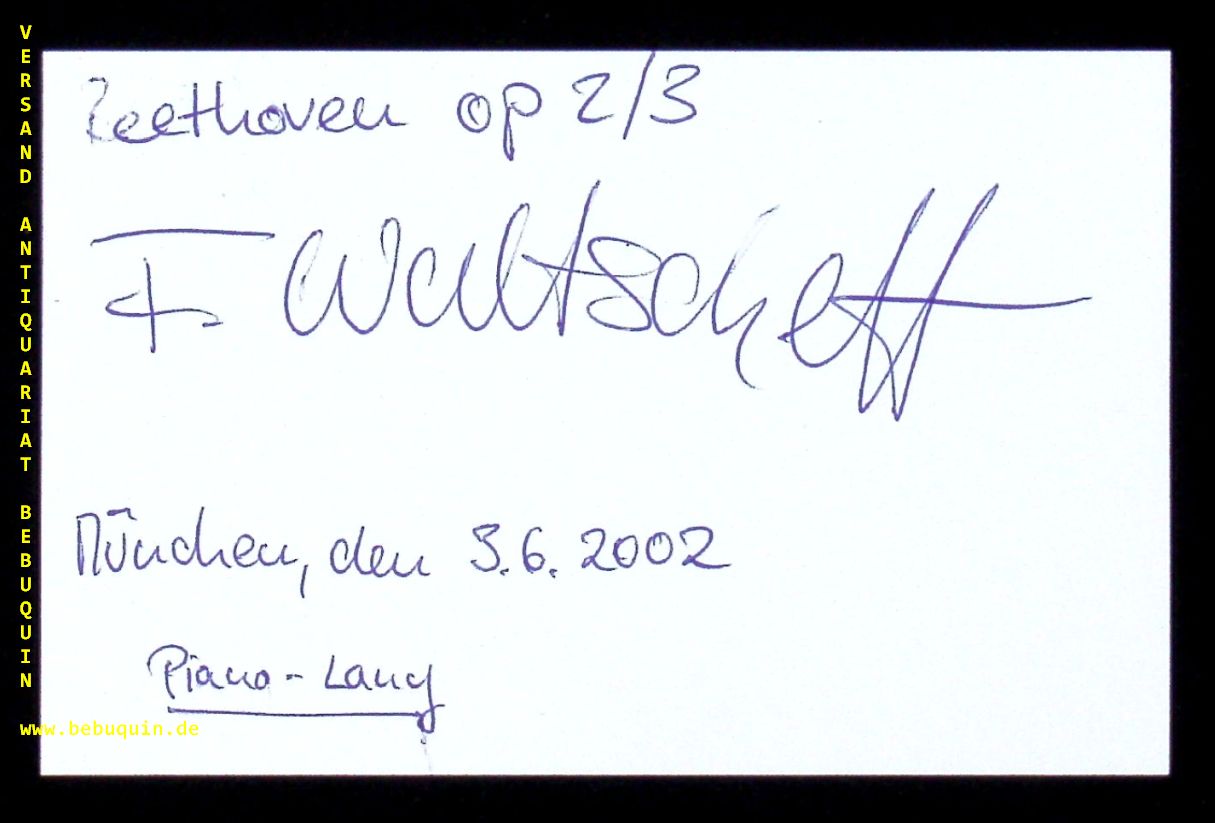 VERSAND ANTIQUARIAT BEBUQUIN
Beethoven op 2/3
F Waltscheff
München, den 3.6.2002
Piano - Lang
www.bebuquin.de